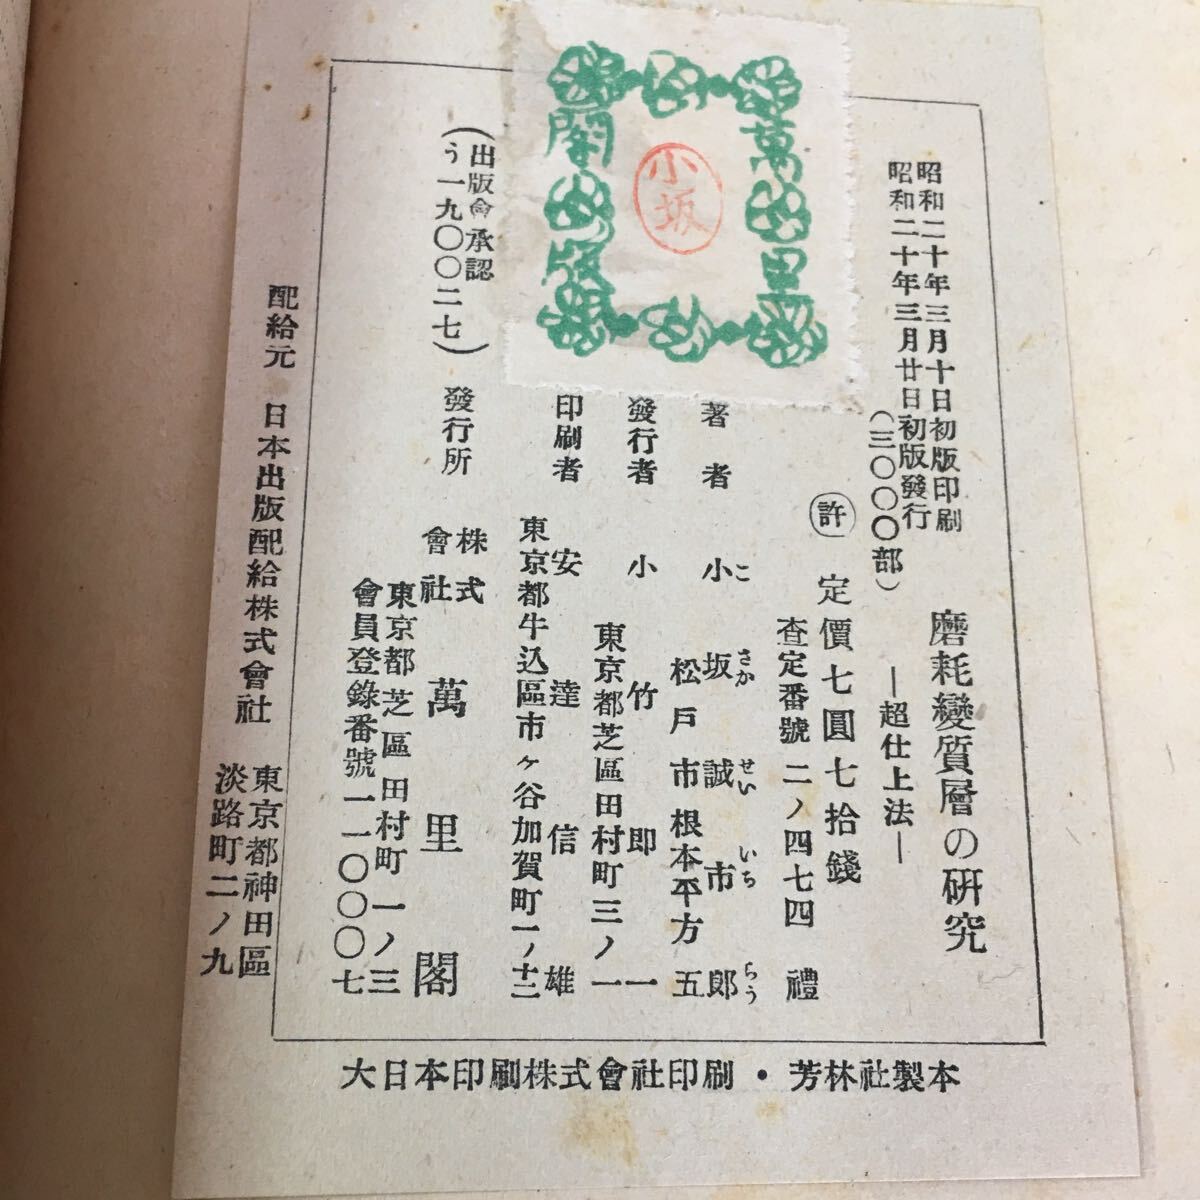 萬里
閣出版
小坂
昭和二十年三月十日初版印刷
昭和二十年三月廿日初版發行
(三〇〇〇部)
磨耗變質層の研究
―超仕上法―
許 定價七圓七拾錢
査定番號 二ノ四七四 禮
著者 小坂誠市郎
こ さか せい いち らう
松戸市根本平方五
發行者 小竹即一
東京都芝區田村町三ノ一
印刷者 安達信雄
東京都牛込區市ヶ谷加賀町一ノ十二
發行所 株式會社 萬里閣
東京都芝區田村町一ノ三
會員登錄番號一一〇〇〇七
(出版會承認
う一九〇〇二七)
配給元 日本出版配給株式會社
東京都神田區
淡路町二ノ九
大日本印刷株式會社印刷・芳林社製本